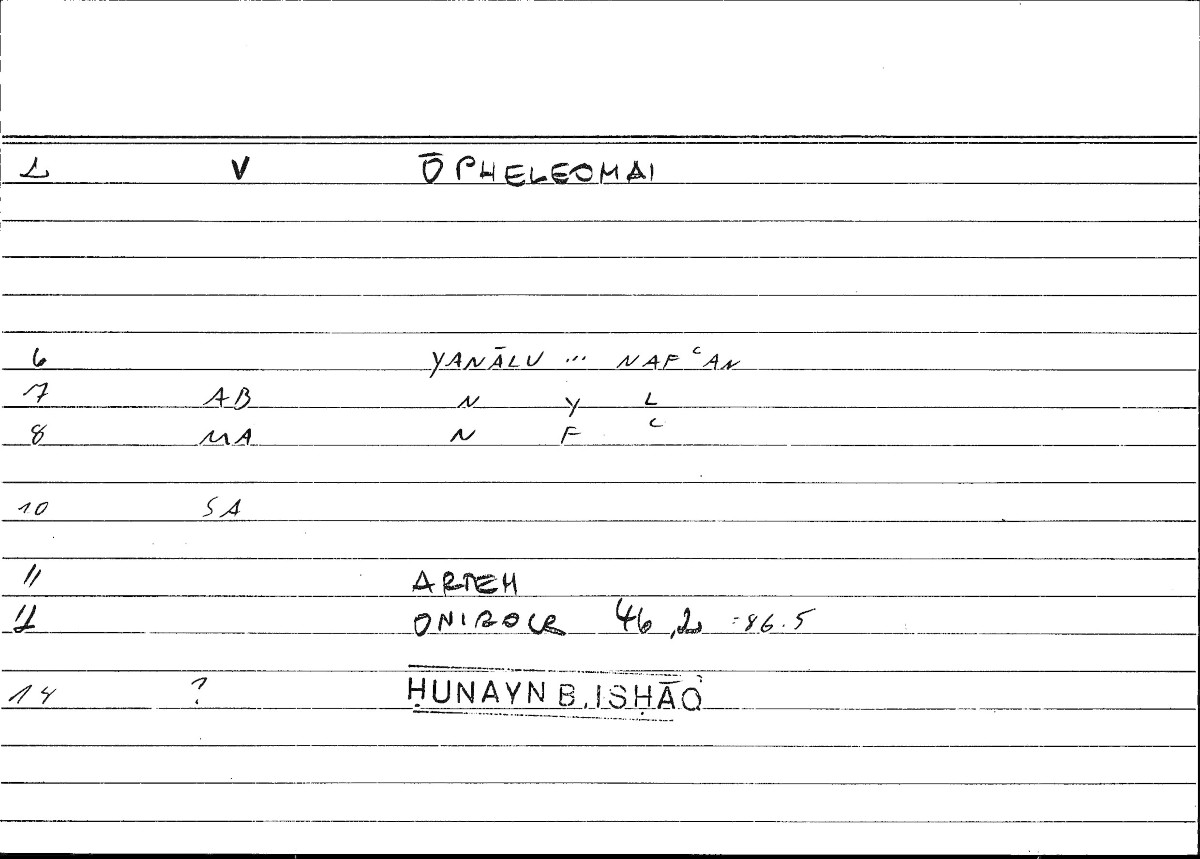 1 V ŌPHELEOMAI
6 YANĀLU ... NAFʿAN
7 AB N Y L
8 MA N F ʿ
10 SA
11 ARTEM
12 ONIROCR 46,2 =86.5
14 ? ḤUNAYN B. ISḤĀQ